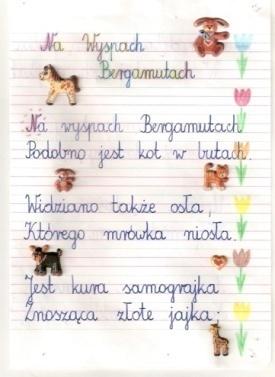 Na Wyspach
Bergamutach
Na wyspach Bergamutach
Podobno jest kot w butach.
Widziano także osła,
Którego mrówka niosła.
Jest kura samograjka
Znosząca złote jajka;